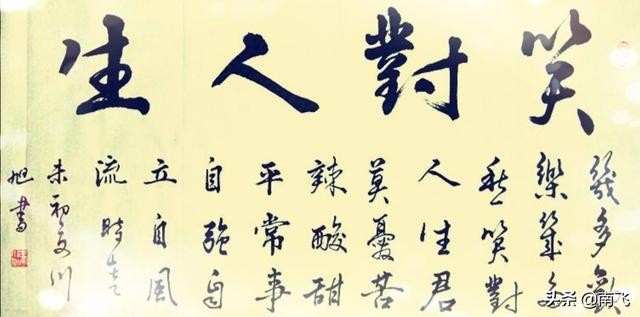 笑對人生
幾多歡
樂幾多
愁笑對
人生君
莫憂苦
辣酸甜
平常事
自強自
立自風
流時在乙
未初夏川
旭書
头条 @南飞